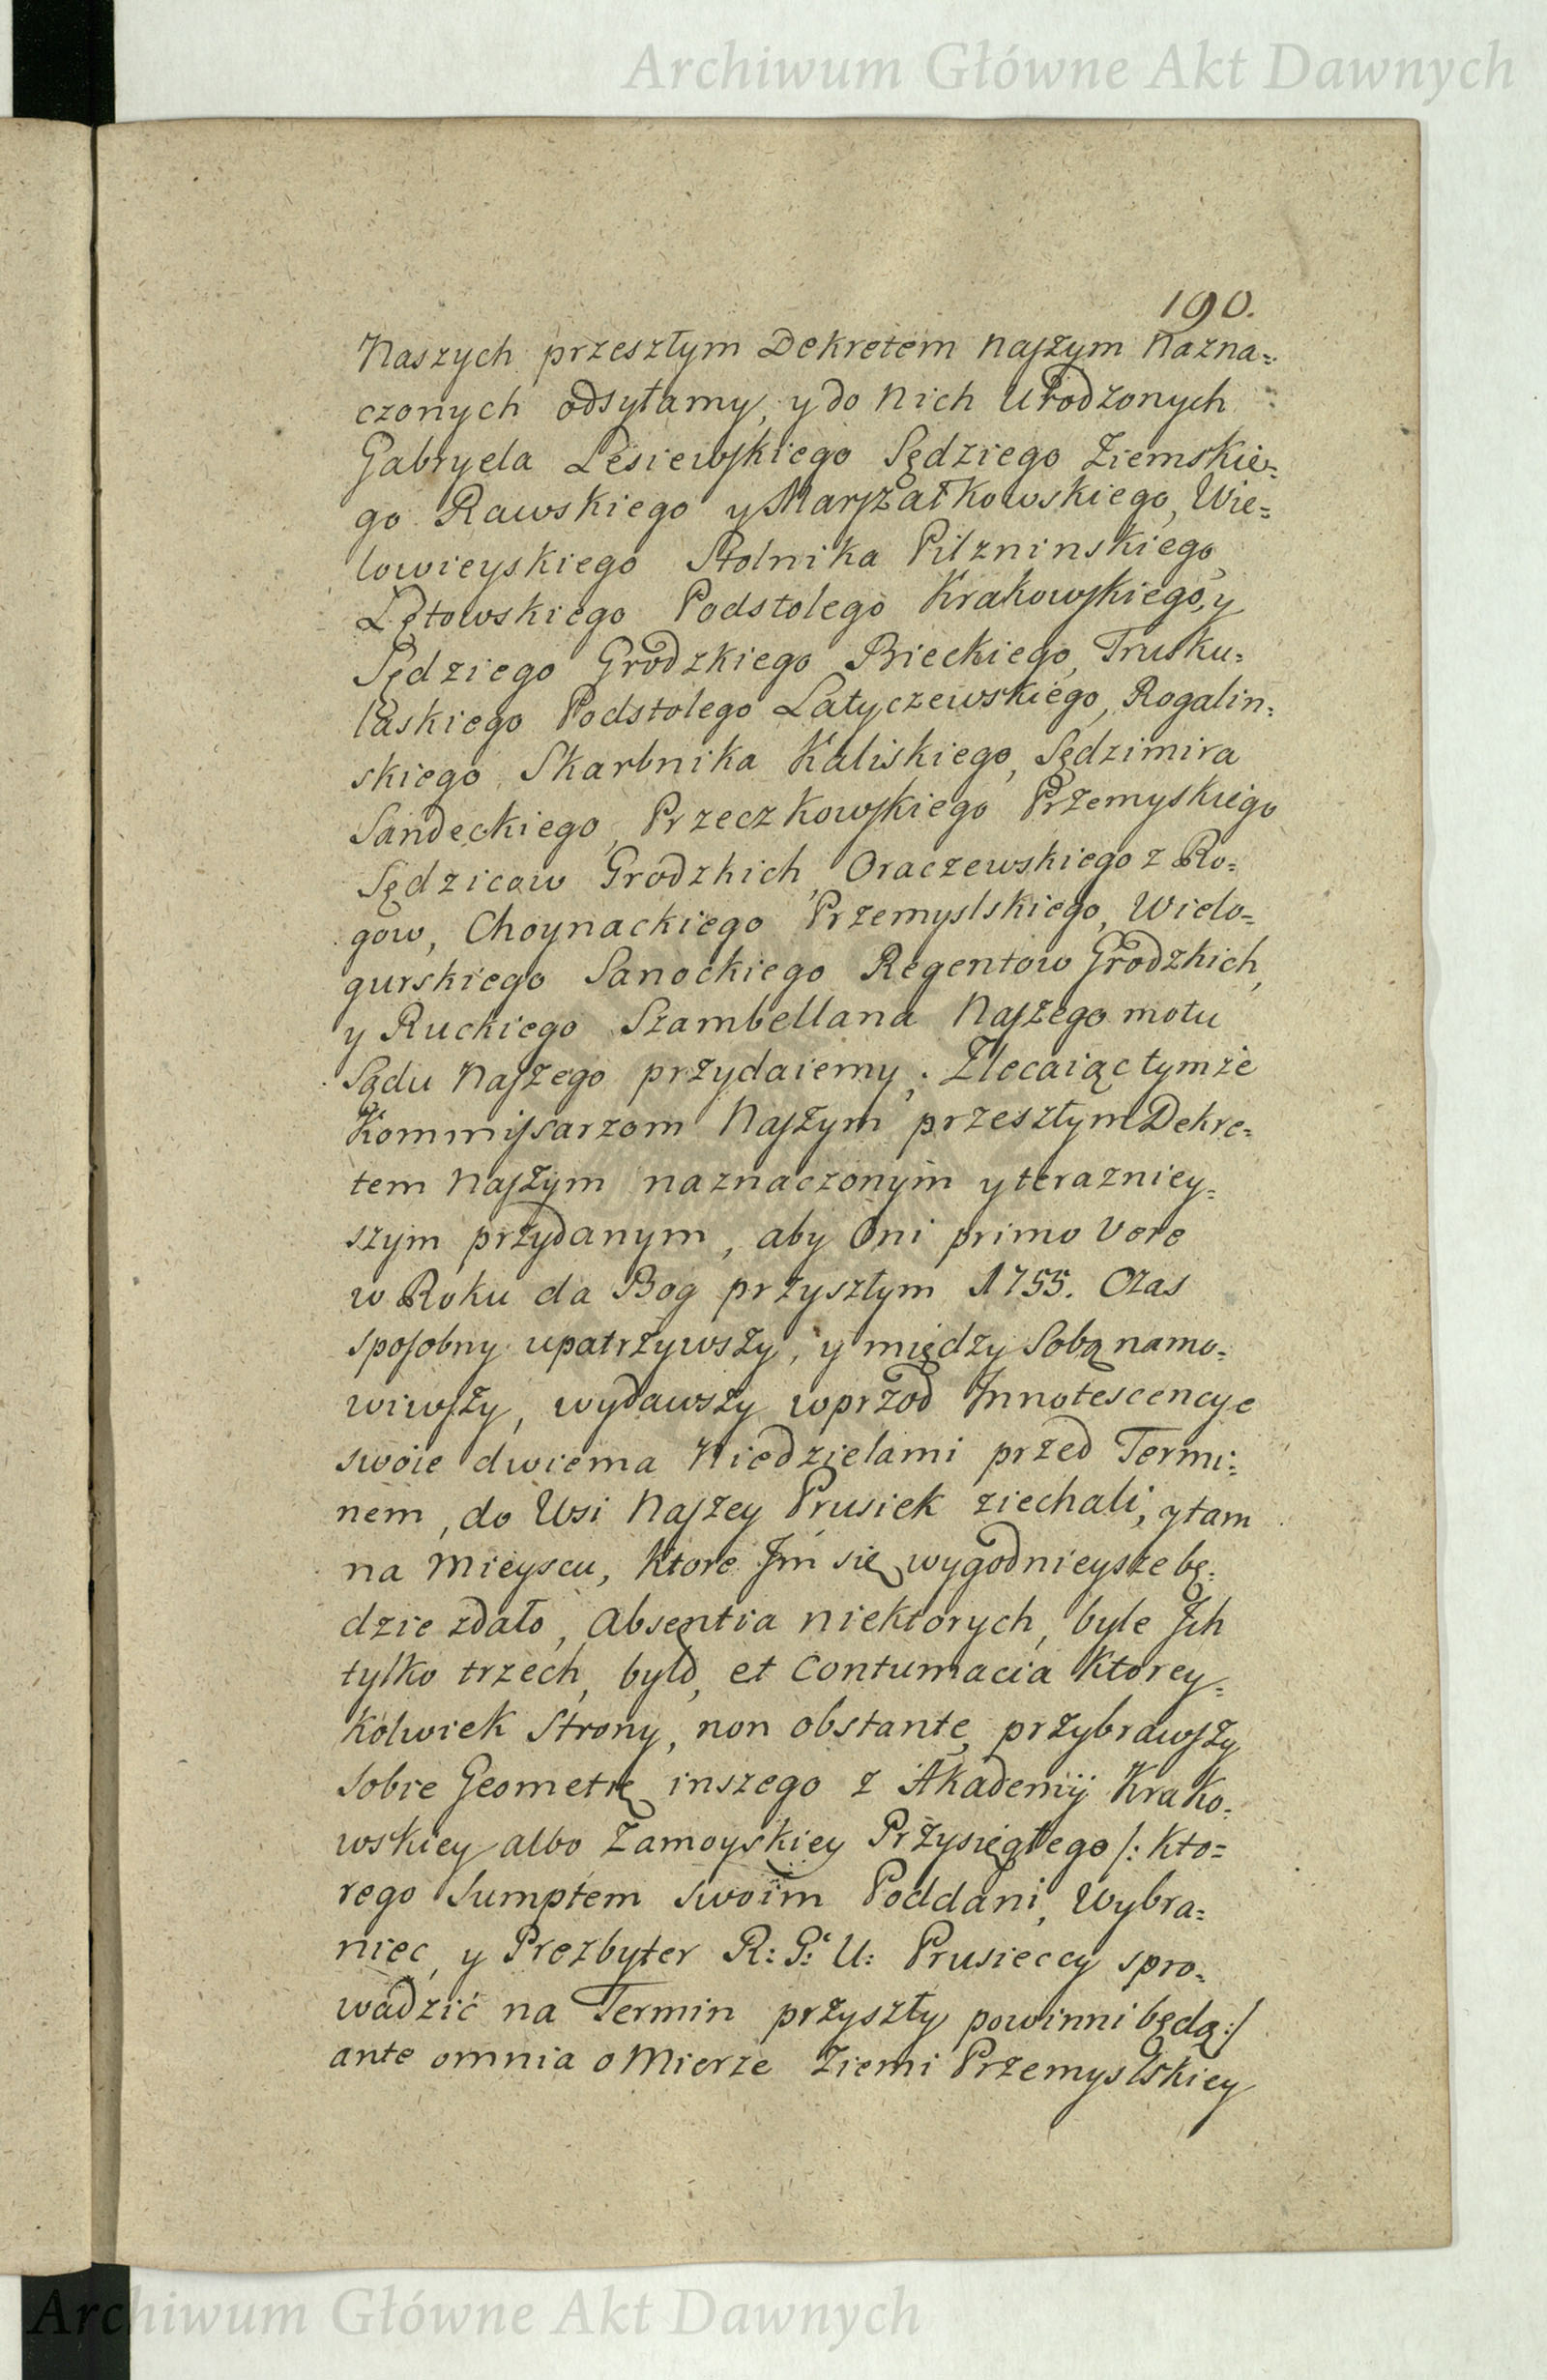 Archiwum Główne Akt Dawnych
190.
Naszych przeszłym Dekretem naszym Nazna=
czonych odsyłamy, y do Nich Urodzonych
Gabryela Lesiewskiego Sędziego Ziemskie=
go Rawskiego y Marszałkowskiego, Wie=
lowieyskiego Stolnika Pilzninskiego,
Lętowskiego Podstolego Krakowskiego, y
Sędziego Grodzkiego Bieckiego, Trusku=
laskiego Podstolego Latyczewskiego, Rogalin=
skiego Skarbnika Kaliskiego, Sędzimira
Sandeckiego, Przeczkowskiego Przemyskiego
Sędzicow Grodzkich, Oraczewskiego z Ro=
gow, Choynackiego Przemyslskiego, Wielo=
gurskiego Sanockiego Regentow Grodzkich,
y Ruckiego Szambellana Naszego motu
Sądu Naszego przydaiemy. Zlecaiąc tymże
Kommissarzom Naszym przeszłym Dekre=
tem Naszym naznaczonym y terazniey=
szym przydanym, aby Oni primo Vere
w Roku da Bog przyszłym 1755. Czas
sposobny upatrzywszy, y między Sobą namo=
wiwszy, wydawszy wprzod Innotescencye
swoie dwiema Niedzielami przed Termi=
nem, do Wsi Naszey Prusiek ziechali, y tam
na Mieyscu, Ktore Jm się wygodnieysze bę=
dzie zdało, Absentia niektorych, byle Jch
tylko trzech, było, et Contumacia Ktorey=
Kolwiek Strony, non obstante, przybrawszy
Sobie Geometrę inszego z Akademij Krako=
wskiey albo Zamoyskiey Przysięgłego /: Kto=
rego Sumptem swoim Poddani, Wybra=
niec, y Prezbyter R: G: U: Prusieccy spro=
wadzić na Termin przyszły powinni będą :/
ante omnia o Mierze Ziemi Przemyslskiey
Archiwum Główne Akt Dawnych